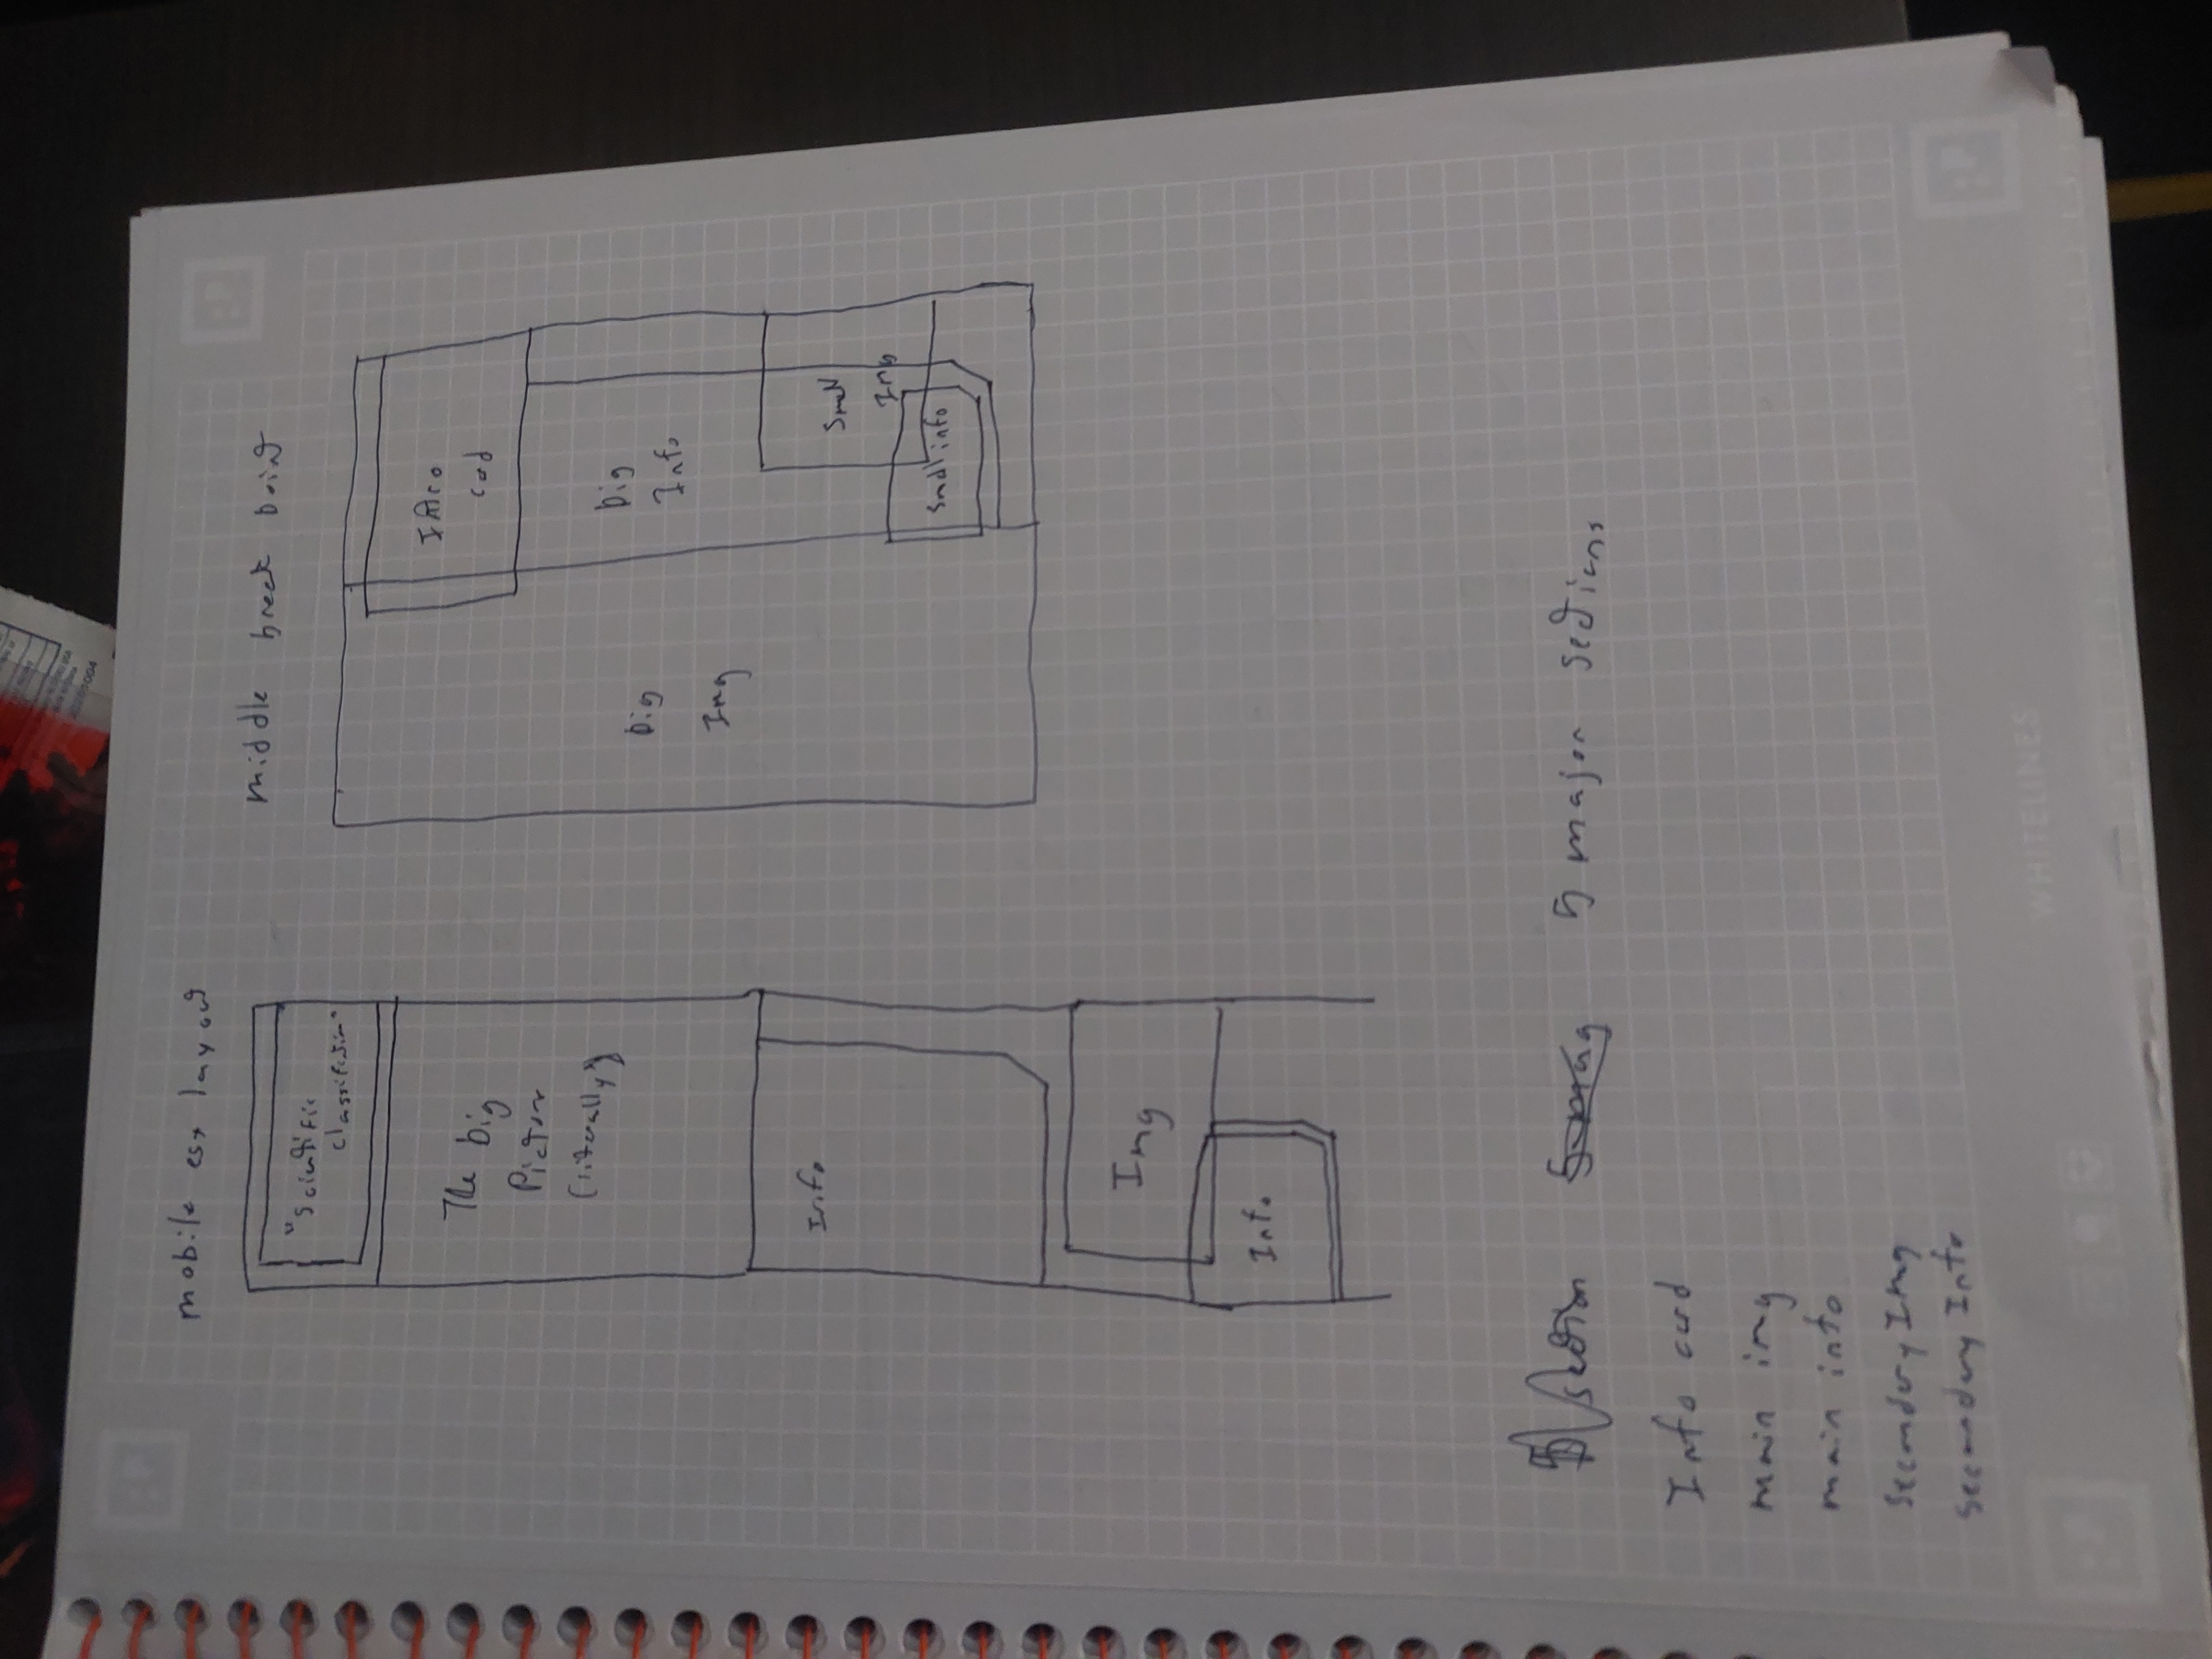 mobile est layout
"Scientific
classification"
The big
Picture
(literally)
Info
Img
Info
middle break point
Intro
card
Big
Img
Big
Info
Small
Img
Small info
section
5 major sections
Info card
main img
main info
Secondary Img
Secondary Info
WHITELINES